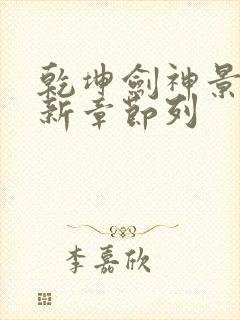 乾坤劍神景
新章節列
李嘉欣